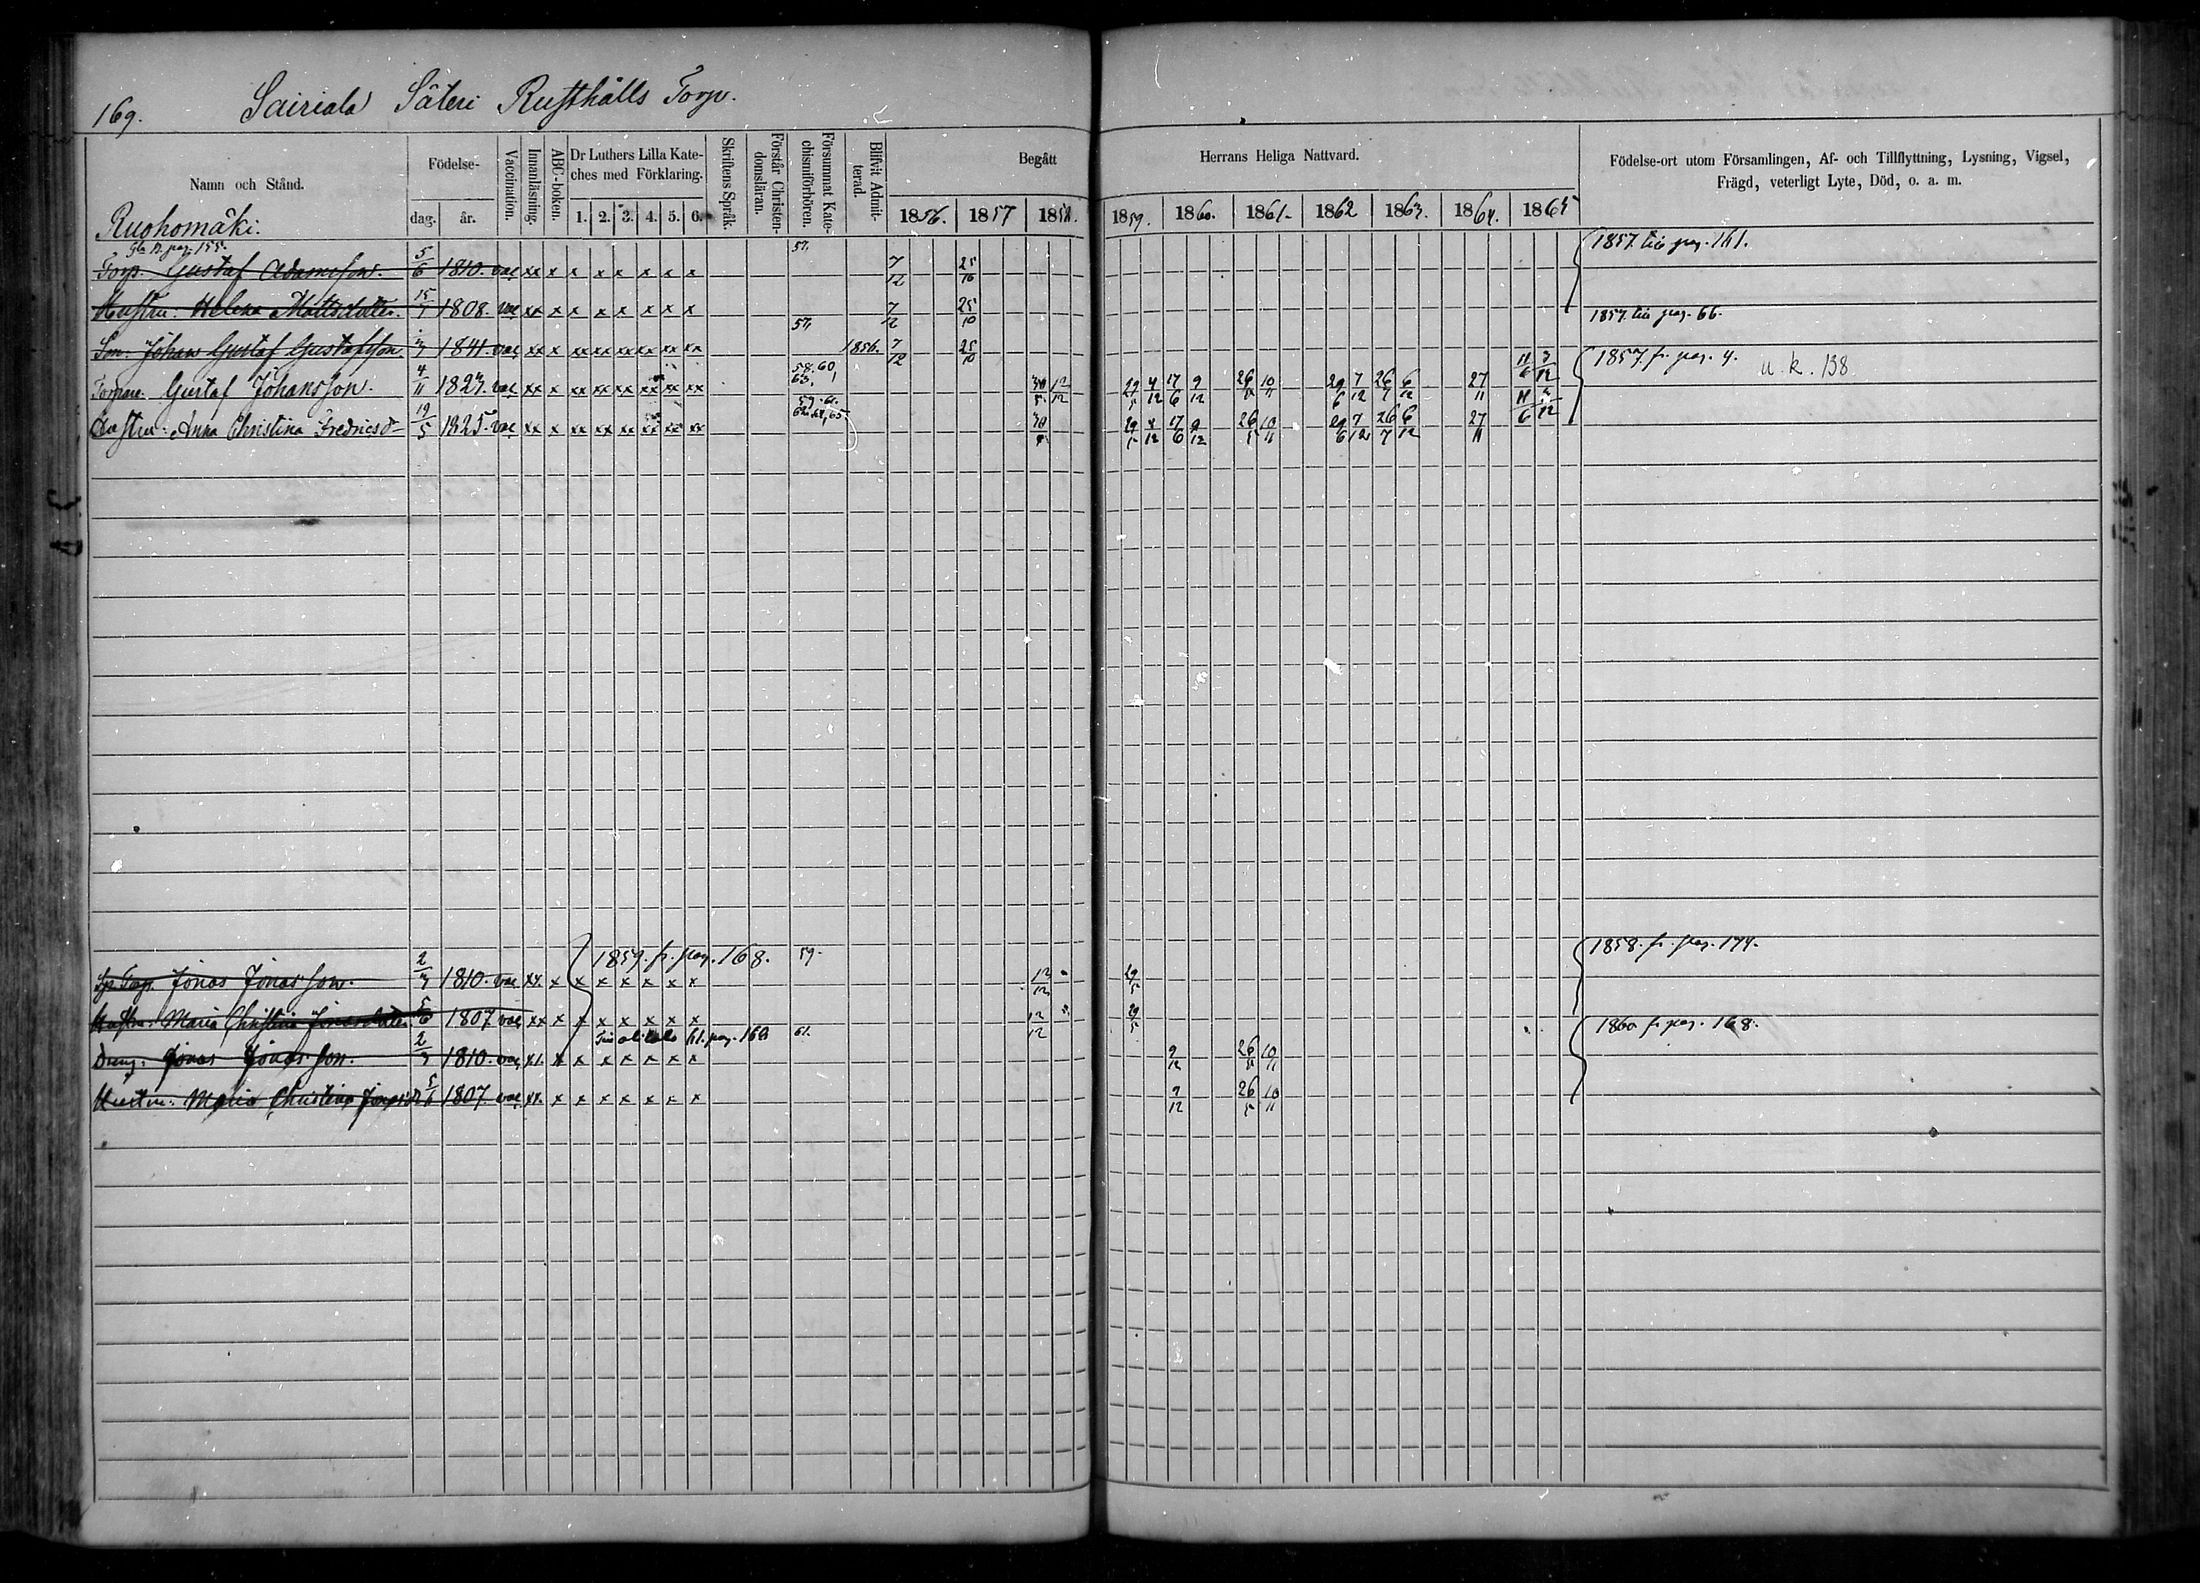 169. Sairiala Säteri Rusthålls Torp.
Namn och Stånd. Födelse- dag. år. Vaccination. Innanläsning. ABC-boken. Dr Luthers Lilla Kateches med Förklaring. 1. 2. 3. 4. 5. 6. Skriftens Språk. Förstår Christendomsläran. Försummat Katechismiförhören. Blifvit Admitterad. Begått Herrans Heliga Nattvard. 1856. 1857 1858. 1859. 1860. 1861. 1862 1863. 1864. 1865 Födelse-ort utom Församlingen, Af- och Tillflyttning, Lysning, Vigsel, Frägd, veterligt Lyte, Död, o. a. m.
Ruohomäki:
pag. 155. 57. 1857. till pag. 161.
Torp. Gustaf Adamsson. 5/6 1810. vac xx x x x x x x x 7/12 25/10
Hustru: Helena Mattsdotter. 15/ 1808. vac xx x x x x x x x 7/12 25/10
57, 1857. till pag. 66.
Son: Johan Gustaf Gustafsson 1841. vac xx x xx xx xx xx xx xx 1856. 7/12 25/10
58. 60, 63, 1857. fr. pag. 4. u. k. 138.
Torpare. Gustaf Johansson. 4/11 1823. vac xx x xx xx xx xx xx xx 30/5 12/12 29/5 4/12 17/6 9/12 26/5 10/11 29/6 7/12 26/7 6/12 27/11 11/6 3/12
59. 61. 62. 64, 65
Hustru: Anna Christina Fredricsd 19/5 1825. vac xx x xx xx xx xx xx xx 30/5 29/5 4/12 17/6 9/12 26/5 10/11 29/6 7/12 26/7 6/12 27/11 11/6 3/12
1859. fr. pag. 168. 59. 1858. fr. pag. 174.
Torp. Jonas Jonasson. 2/3 1810. vac xx. x x x x x x x 12/12 29/5
Hustru: Maria Christina Jonasdotter. 5/6 1807 vac xx x x x x x x x 12/12 29/5
61. pag. 168 61. 1860 fr. pag. 168.
Dräng: Jonas Jonasson. 2/3 1810. vac xx. x x x x x x x 9/12 26/5 10/11
Hustru: Maria Christina 5/6 1807 vac xx. x x x x x x x 9/12 26/5 10/11